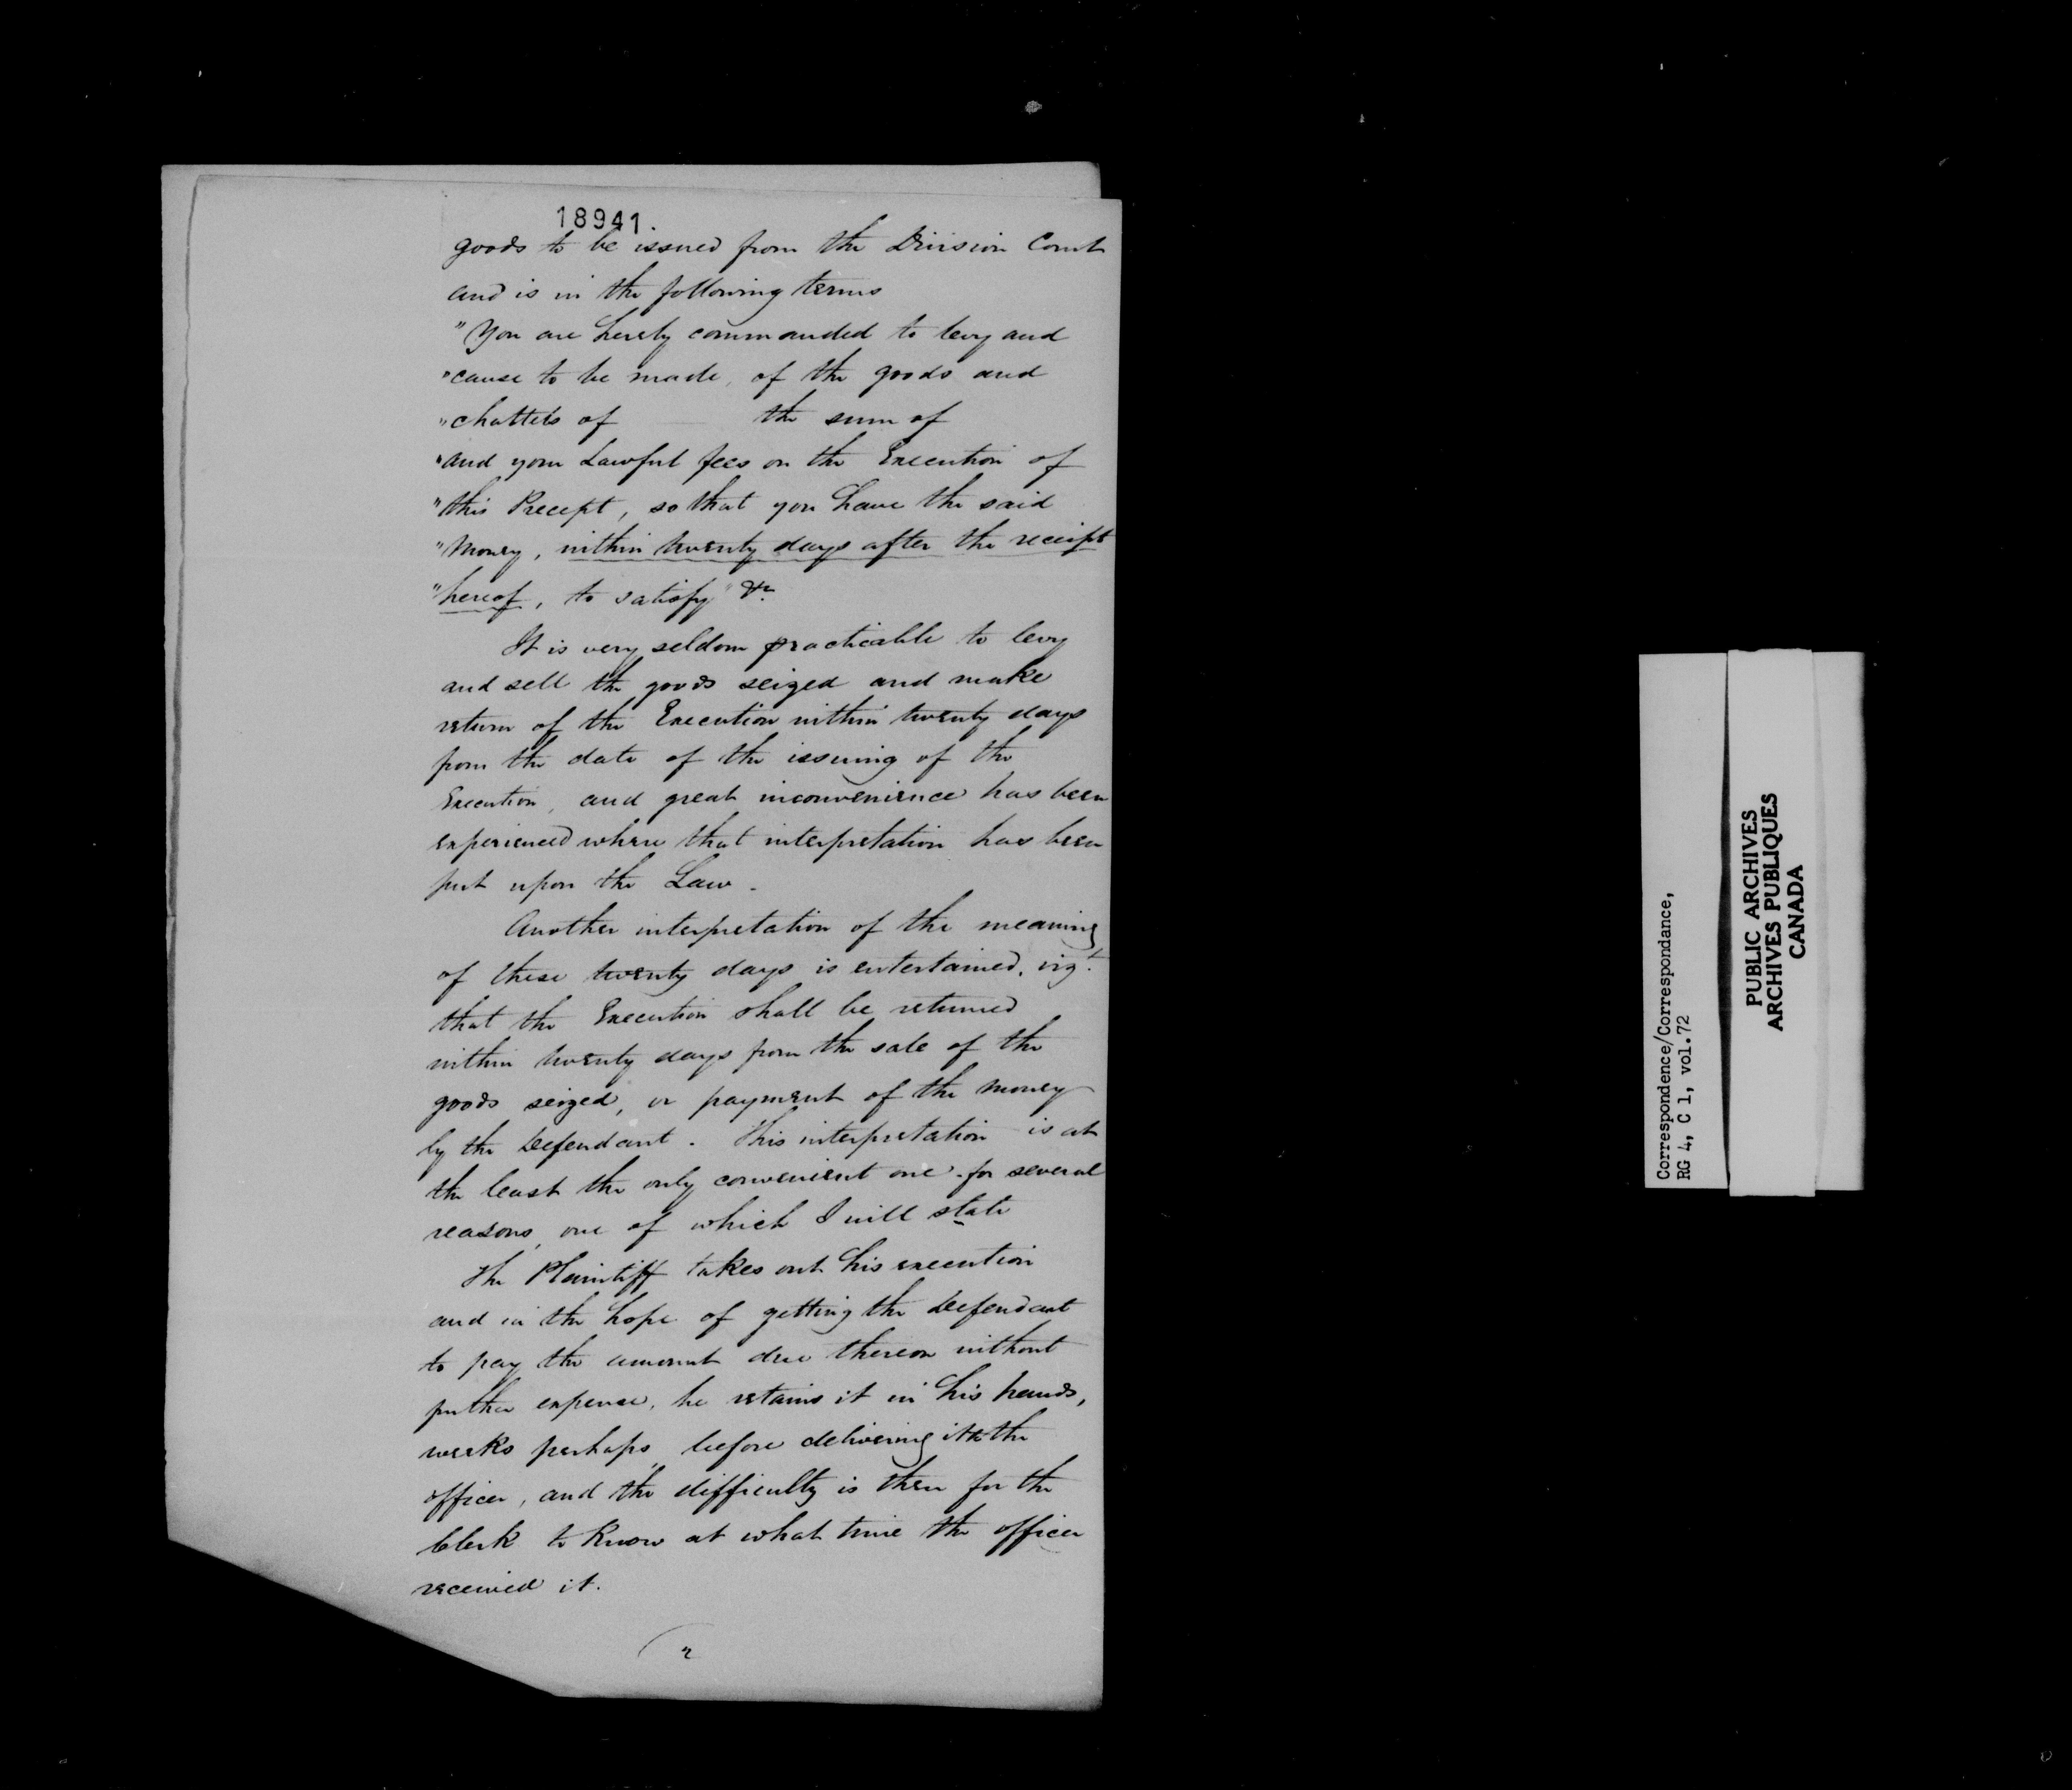 18941.
goods to be issued from the Division Court
and is in the following terms
"You are hereby commanded to levy and
"cause to be made, of the goods and
"chattels of the sum of
"and your Lawful fees on the Execution of
"this Precept, so that you have the said
"Money, within twenty days after the receipt
"hereof, to satisfy" &c
It is very seldom practicable to levy
and sell the goods seized and make
return of the Execution within twenty days
from the date of the issuing of the
Execution, and great inconvenience has been
experienced where that interpretation has been
put upon the Law.
Another interpretation of the meaning
of these twenty days is entertained, vizt.
that the Execution shall be returned
within twenty days from the sale of the
goods seized, or payment of the money
by the Defendant. This interpretation is at
the least the only convenient one for several
reasons, one of which I will state
The Plaintiff takes out his execution
and in the hope of getting the Defendant
to pay the amount due thereon without
further expense, he retains it in his hands,
weeks perhaps, before delivering it to the
officer, and the difficulty is then for the
Clerk to know at what time the officer
received it.
2
Correspondence/Correspondance,
RG 4, C 1, vol.72
PUBLIC ARCHIVES
ARCHIVES PUBLIQUES
CANADA